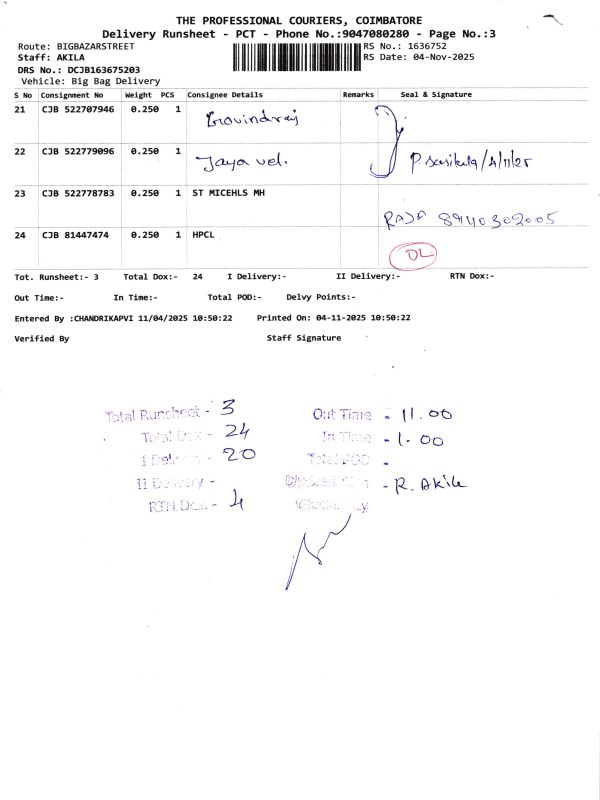 THE PROFESSIONAL COURIERS, COIMBATORE
Delivery Runsheet - PCT - Phone No.:9047080280 - Page No.:3
Route: BIGBAZARSTREET RS No.: 1636752
Staff: AKILA RS Date: 04-Nov-2025
DRS No.: DCJB163675203
Vehicle: Big Bag Delivery
S No Consignment No Weight PCS Consignee Details Remarks Seal & Signature
21 CJB 522707946 0.250 1 Govindraj
22 CJB 522779096 0.250 1 Jayavel. P. Sasikala/4/11/25
23 CJB 522778783 0.250 1 ST MICEHLS MH
RAJA 8940302005
24 CJB 81447474 0.250 1 HPCL DL
Tot. Runsheet:- 3 Total Dox:- 24 I Delivery:- II Delivery:- RTN Dox:-
Out Time:- In Time:- Total POD:- Delvy Points:-
Entered By :CHANDRIKAPVI 11/04/2025 10:50:22 Printed On: 04-11-2025 10:50:22
Verified By Staff Signature
Total Runsheet - 3 Out Time - 11.00
Total Dox - 24 In Time - 1.00
I Delivery - 20 Total POD -
II Delivery - - R. Akila
RTN Dox - 4